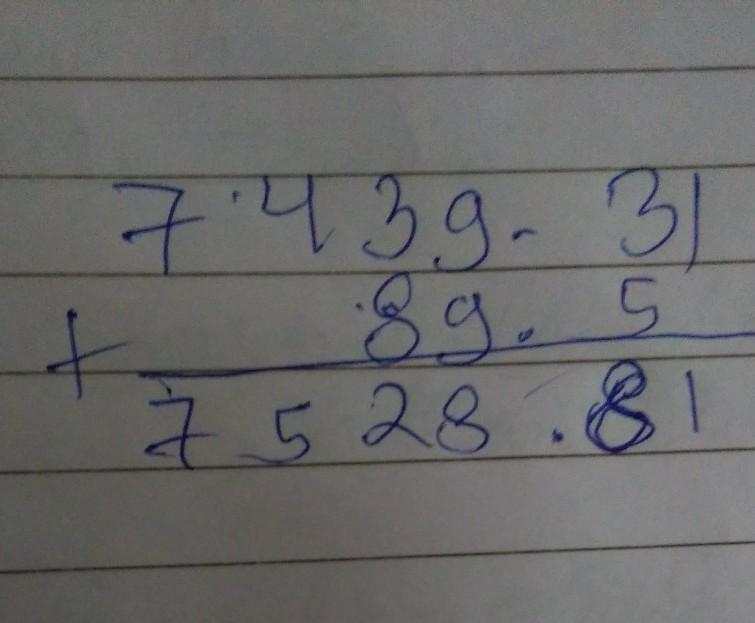 7439.31
+ 89.5
7528.81